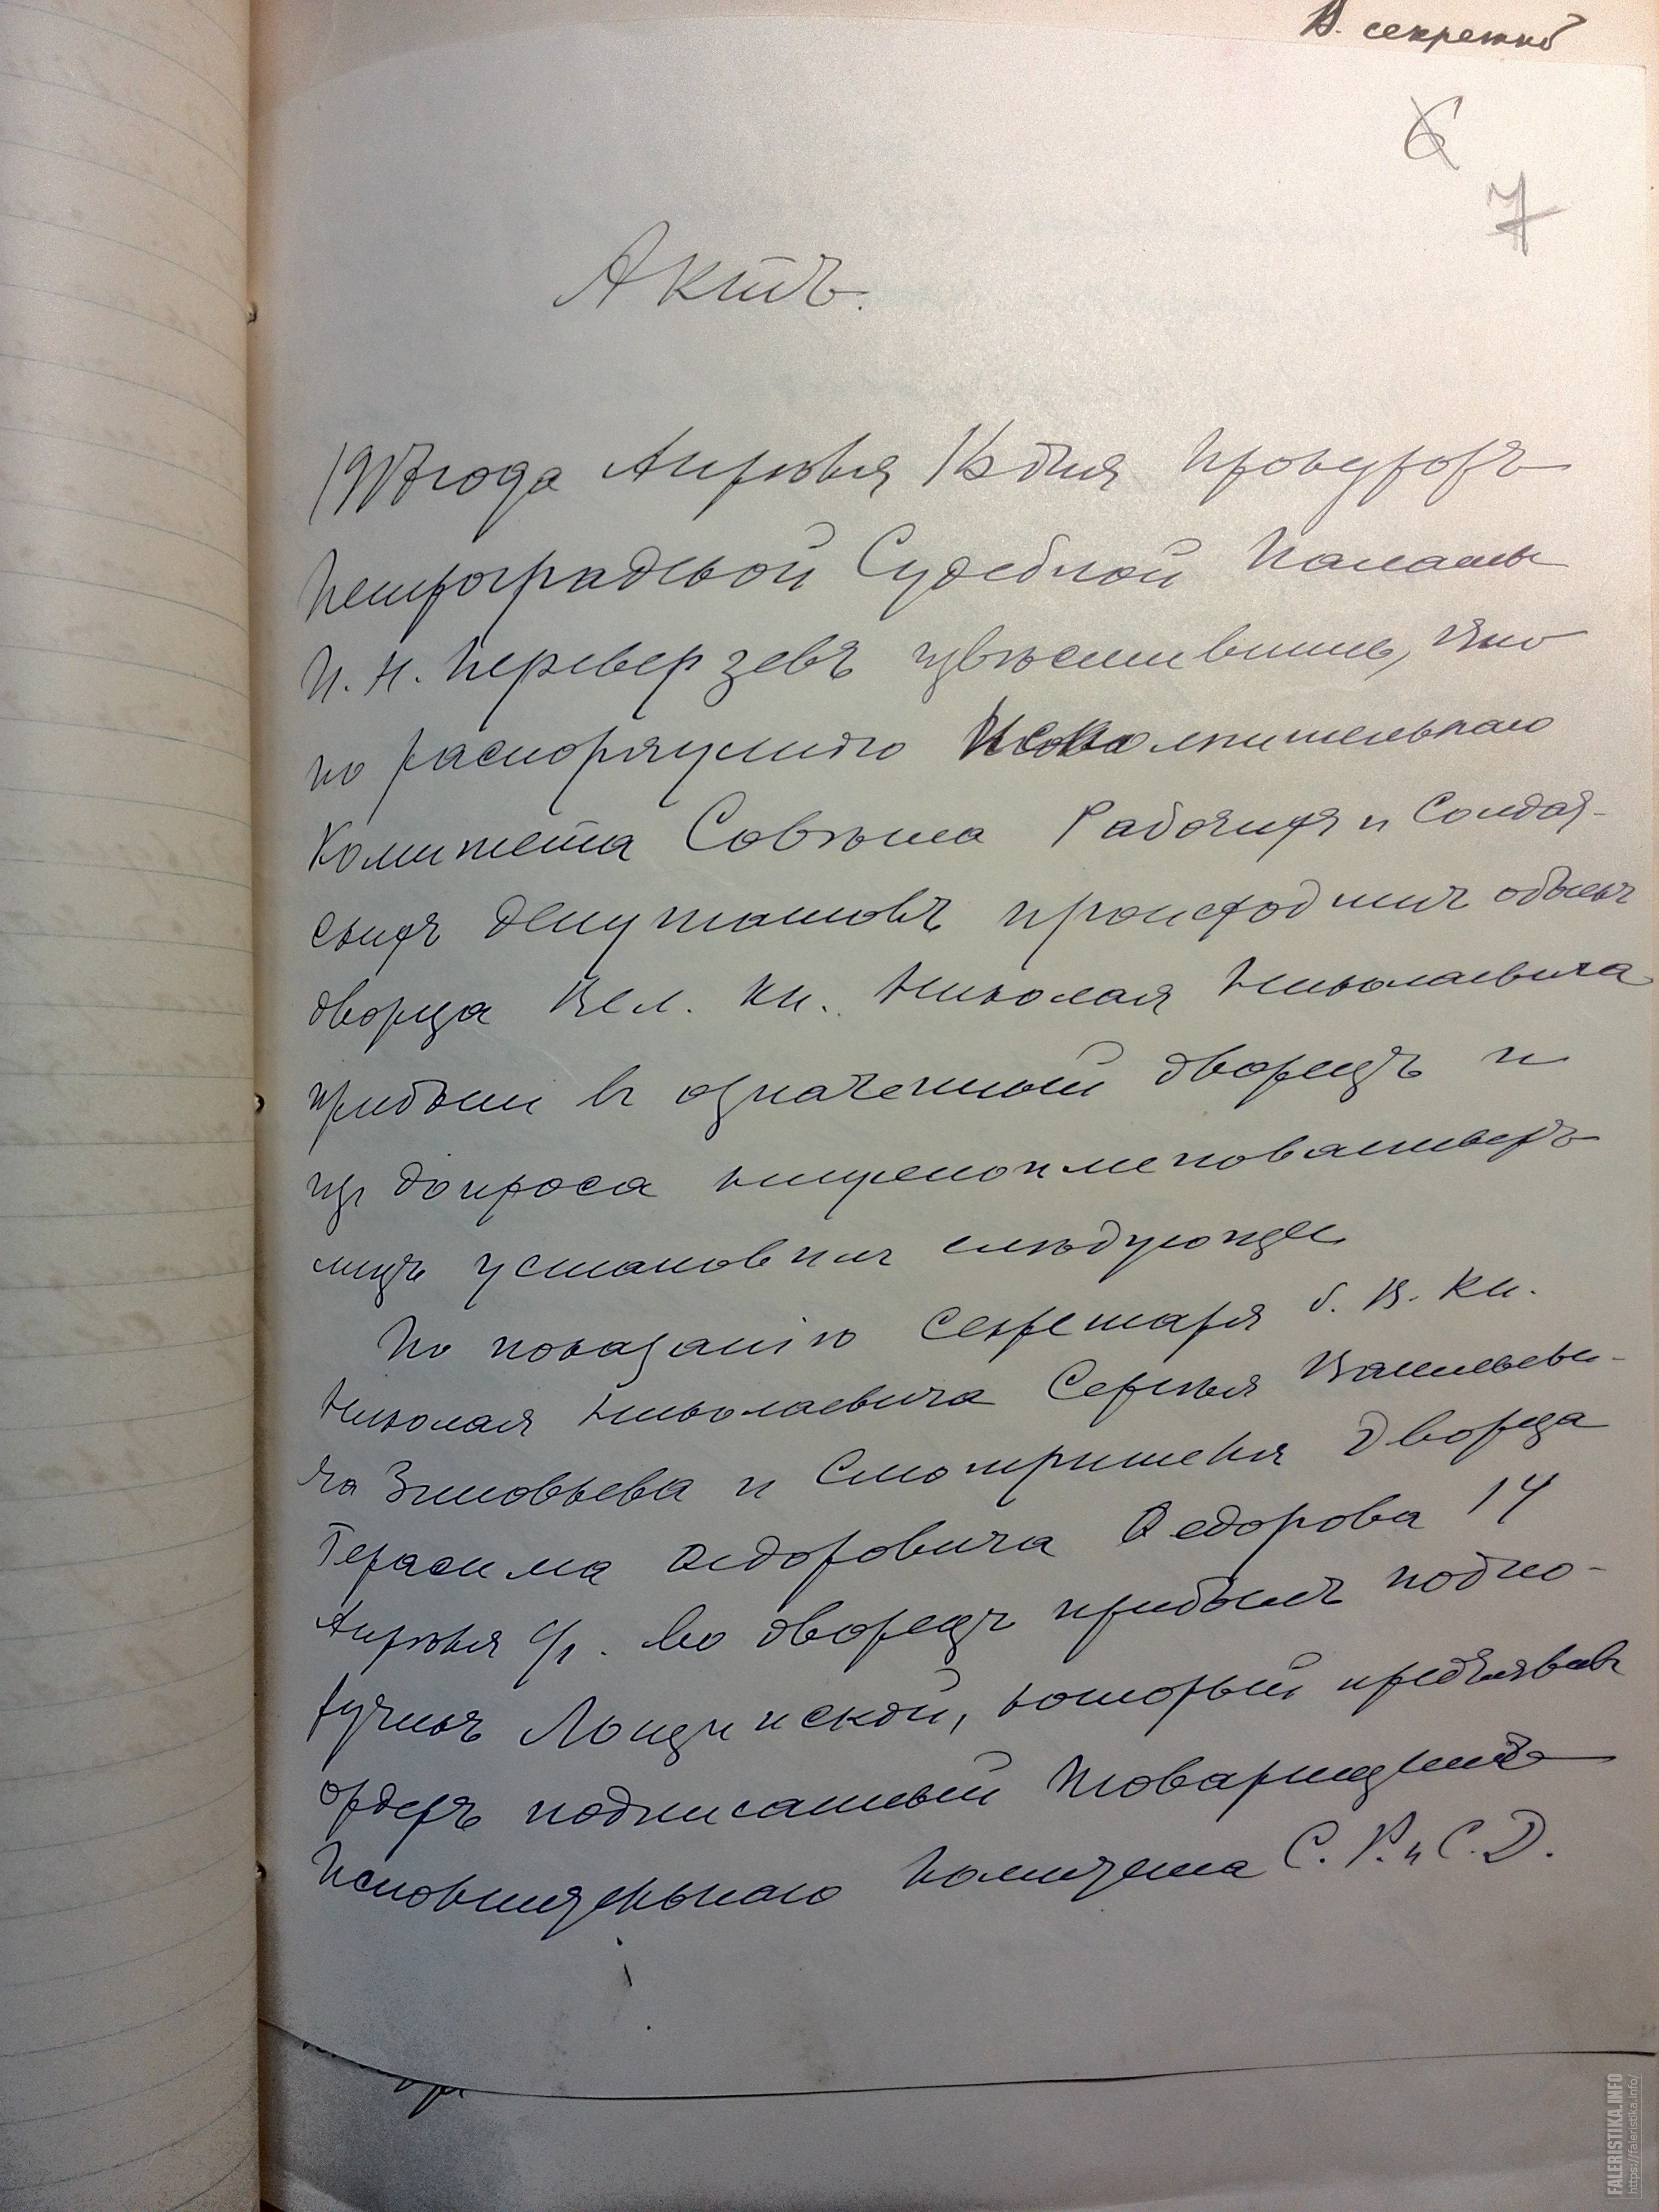 В. секретно
6
7
Актъ.
1917 года Апрѣля дня Прокуроръ
Петроградской Судебной Палаты
П. Н. Переверзевъ извѣстившись, что
по распоряженію Исполнительнаго
Комитета Совѣта Рабочихъ и Солдат-
скихъ Депутатовъ происходитъ обыскъ
дворца Вел. Кн. Николая Николаевича
прибылъ въ означенный дворецъ и
изъ допроса нижепоименованныхъ
лицъ установилъ слѣдующее
По показанію Секретаря б. В. Кн.
Николая Николаевича Сергѣя Васильеви-
ча Зиновьева и Смотрителя Дворца
Герасима Федоровича Федорова 14
Апрѣля с/г. во дворецъ прибылъ подпо-
ручикъ Лощинской, который предъявивъ
ордеръ подписанный Товарищемъ
Исполнительнаго Комитета С. Р. и С. Д.
FALERISTIKA.INFO
https://faleristika.info/